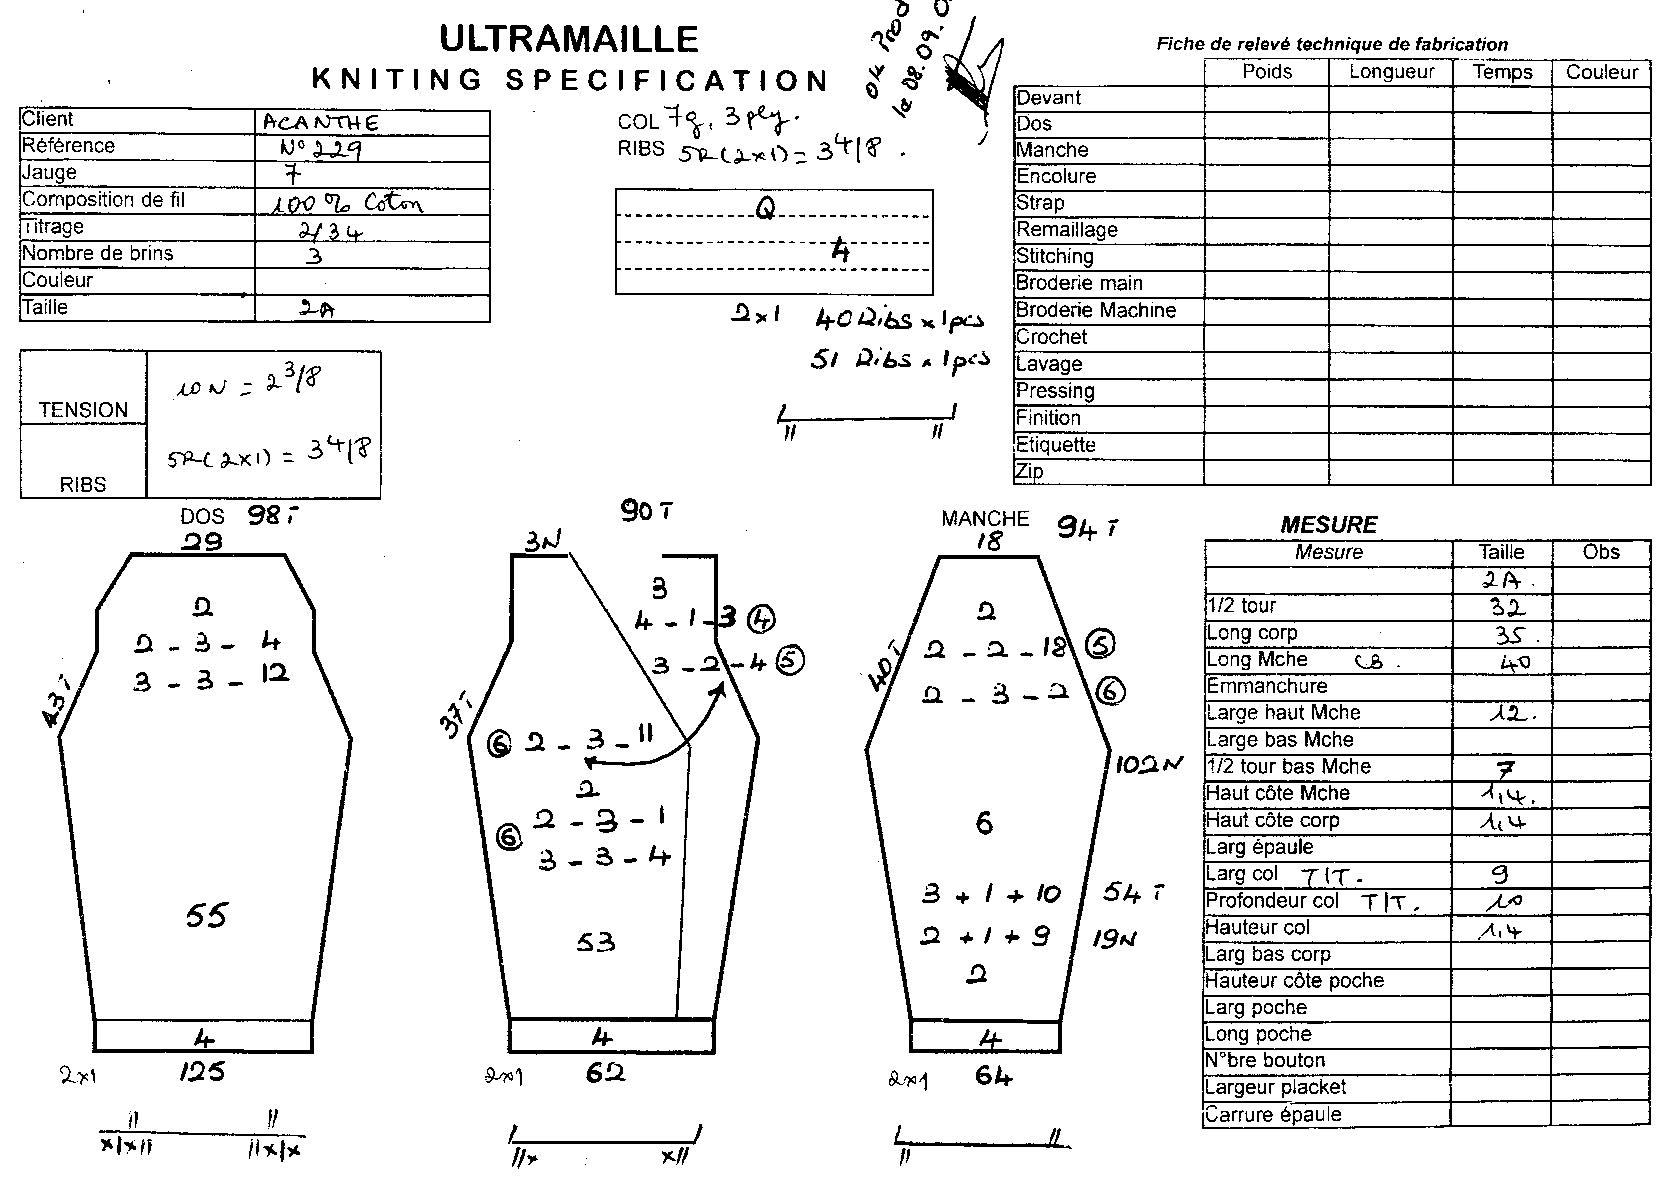 ULTRAMAILLE
KNITING SPECIFICATION
OK Prod
le 08.09.0
Client ACANTHE
Référence N° 229
Jauge 7
Composition de fil 100 % Coton
Titrage 2/34
Nombre de brins 3
Couleur
Taille 2A
COL 7g, 3 ply.
RIBS 5R(2x1) = 3 4/8 .
Q
4
2x1 40 Ribs x 1pcs
51 Ribs x 1pcs
TENSION 10 N = 2 3/8
RIBS 5R(2x1) = 3 4/8
Fiche de relevé technique de fabrication
Poids Longueur Temps Couleur
Devant
Dos
Manche
Encolure
Strap
Remaillage
Stitching
Broderie main
Broderie Machine
Crochet
Lavage
Pressing
Finition
Etiquette
Zip
DOS 98T
29
2
2 - 3 - 4
3 - 3 - 12
43T
55
4
2x1 125
x|x|| ||x|x
90T
3N
3
4 - 1 - 3 ④
3 - 2 - 4 ⑤
37T
⑥ 2 - 3 - 11
2
⑥ 2 - 3 - 1
3 - 3 - 4
53
4
2x1 62
||x x||
MANCHE 94T
18
2
40T
2 - 2 - 18 ⑤
2 - 3 - 2 ⑥
102N
6
3 + 1 + 10 54T
2 + 1 + 9 19N
2
4
2x1 64
MESURE
Mesure Taille Obs
2A.
1/2 tour 32
Long corp 35.
Long Mche CB. 40
Emmanchure
Large haut Mche 12.
Large bas Mche
1/2 tour bas Mche 7
Haut côte Mche 1,4.
Haut côte corp 1,4
Larg épaule
Larg col T|T. 9
Profondeur col T|T. 10
Hauteur col 1,4
Larg bas corp
Hauteur côte poche
Larg poche
Long poche
N°bre bouton
Largeur placket
Carrure épaule